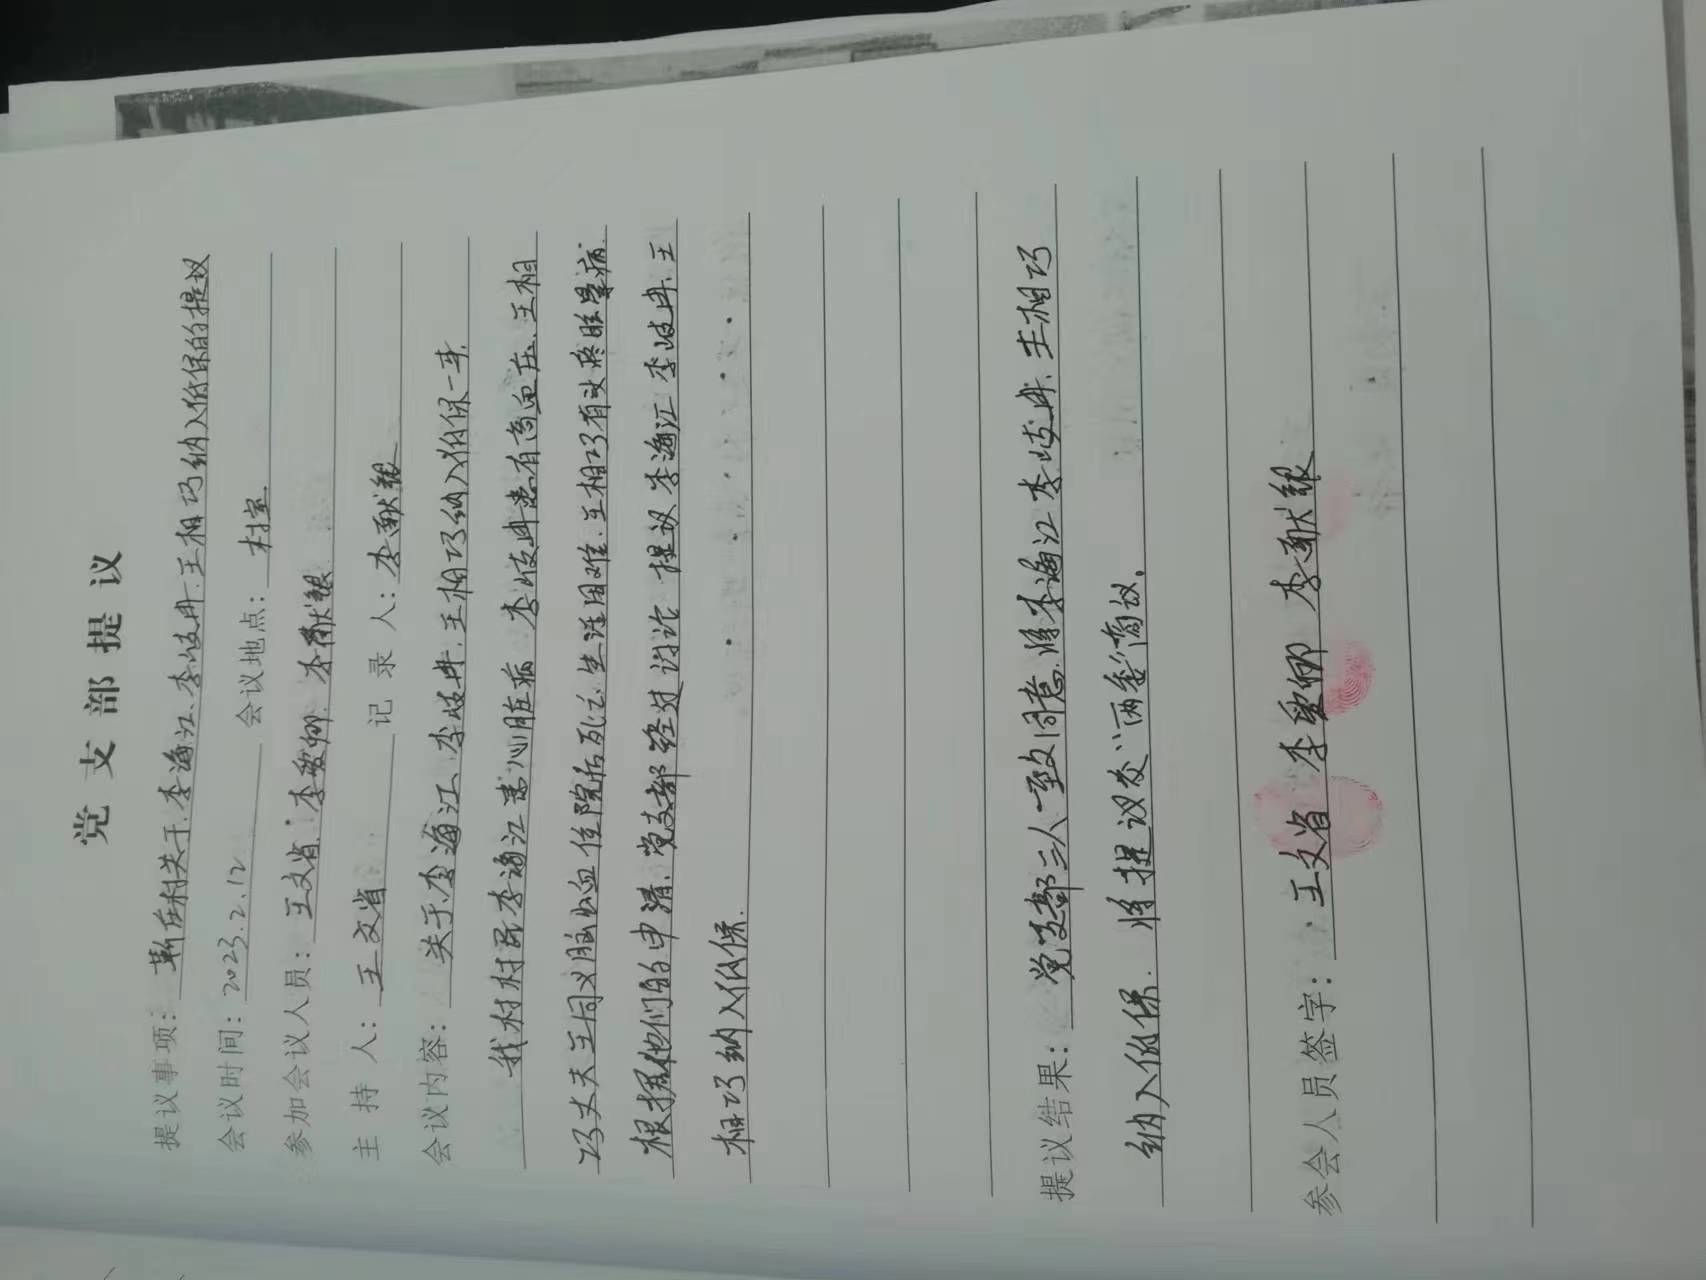 党支部提议
提议事项：靳庄村关于李海江、李岐冉、王相巧纳入低保的提议
会议时间：2023.2.12 会议地点：村室.
参加会议人员：王文省. 李爱娜. 李献银
主持人：王文省 记录人：李献银
会议内容：关于李海江、李岐冉、王相巧纳入低保一事.
我村村民李海江患心脏病 李岐冉患有高血压、王相
巧丈夫王同义脑出血住院后死亡生活困难、王相巧有严重病.
根据他们的申请、党支部经过讨论 提议李海江 李岐冉、王
相巧纳入低保.
提议结果：党支部三人一致同意.将李海江 李岐冉、王相巧
纳入低保. 将提议交"两委"商议.
参会人员签字：王文省 李爱娜 李献银